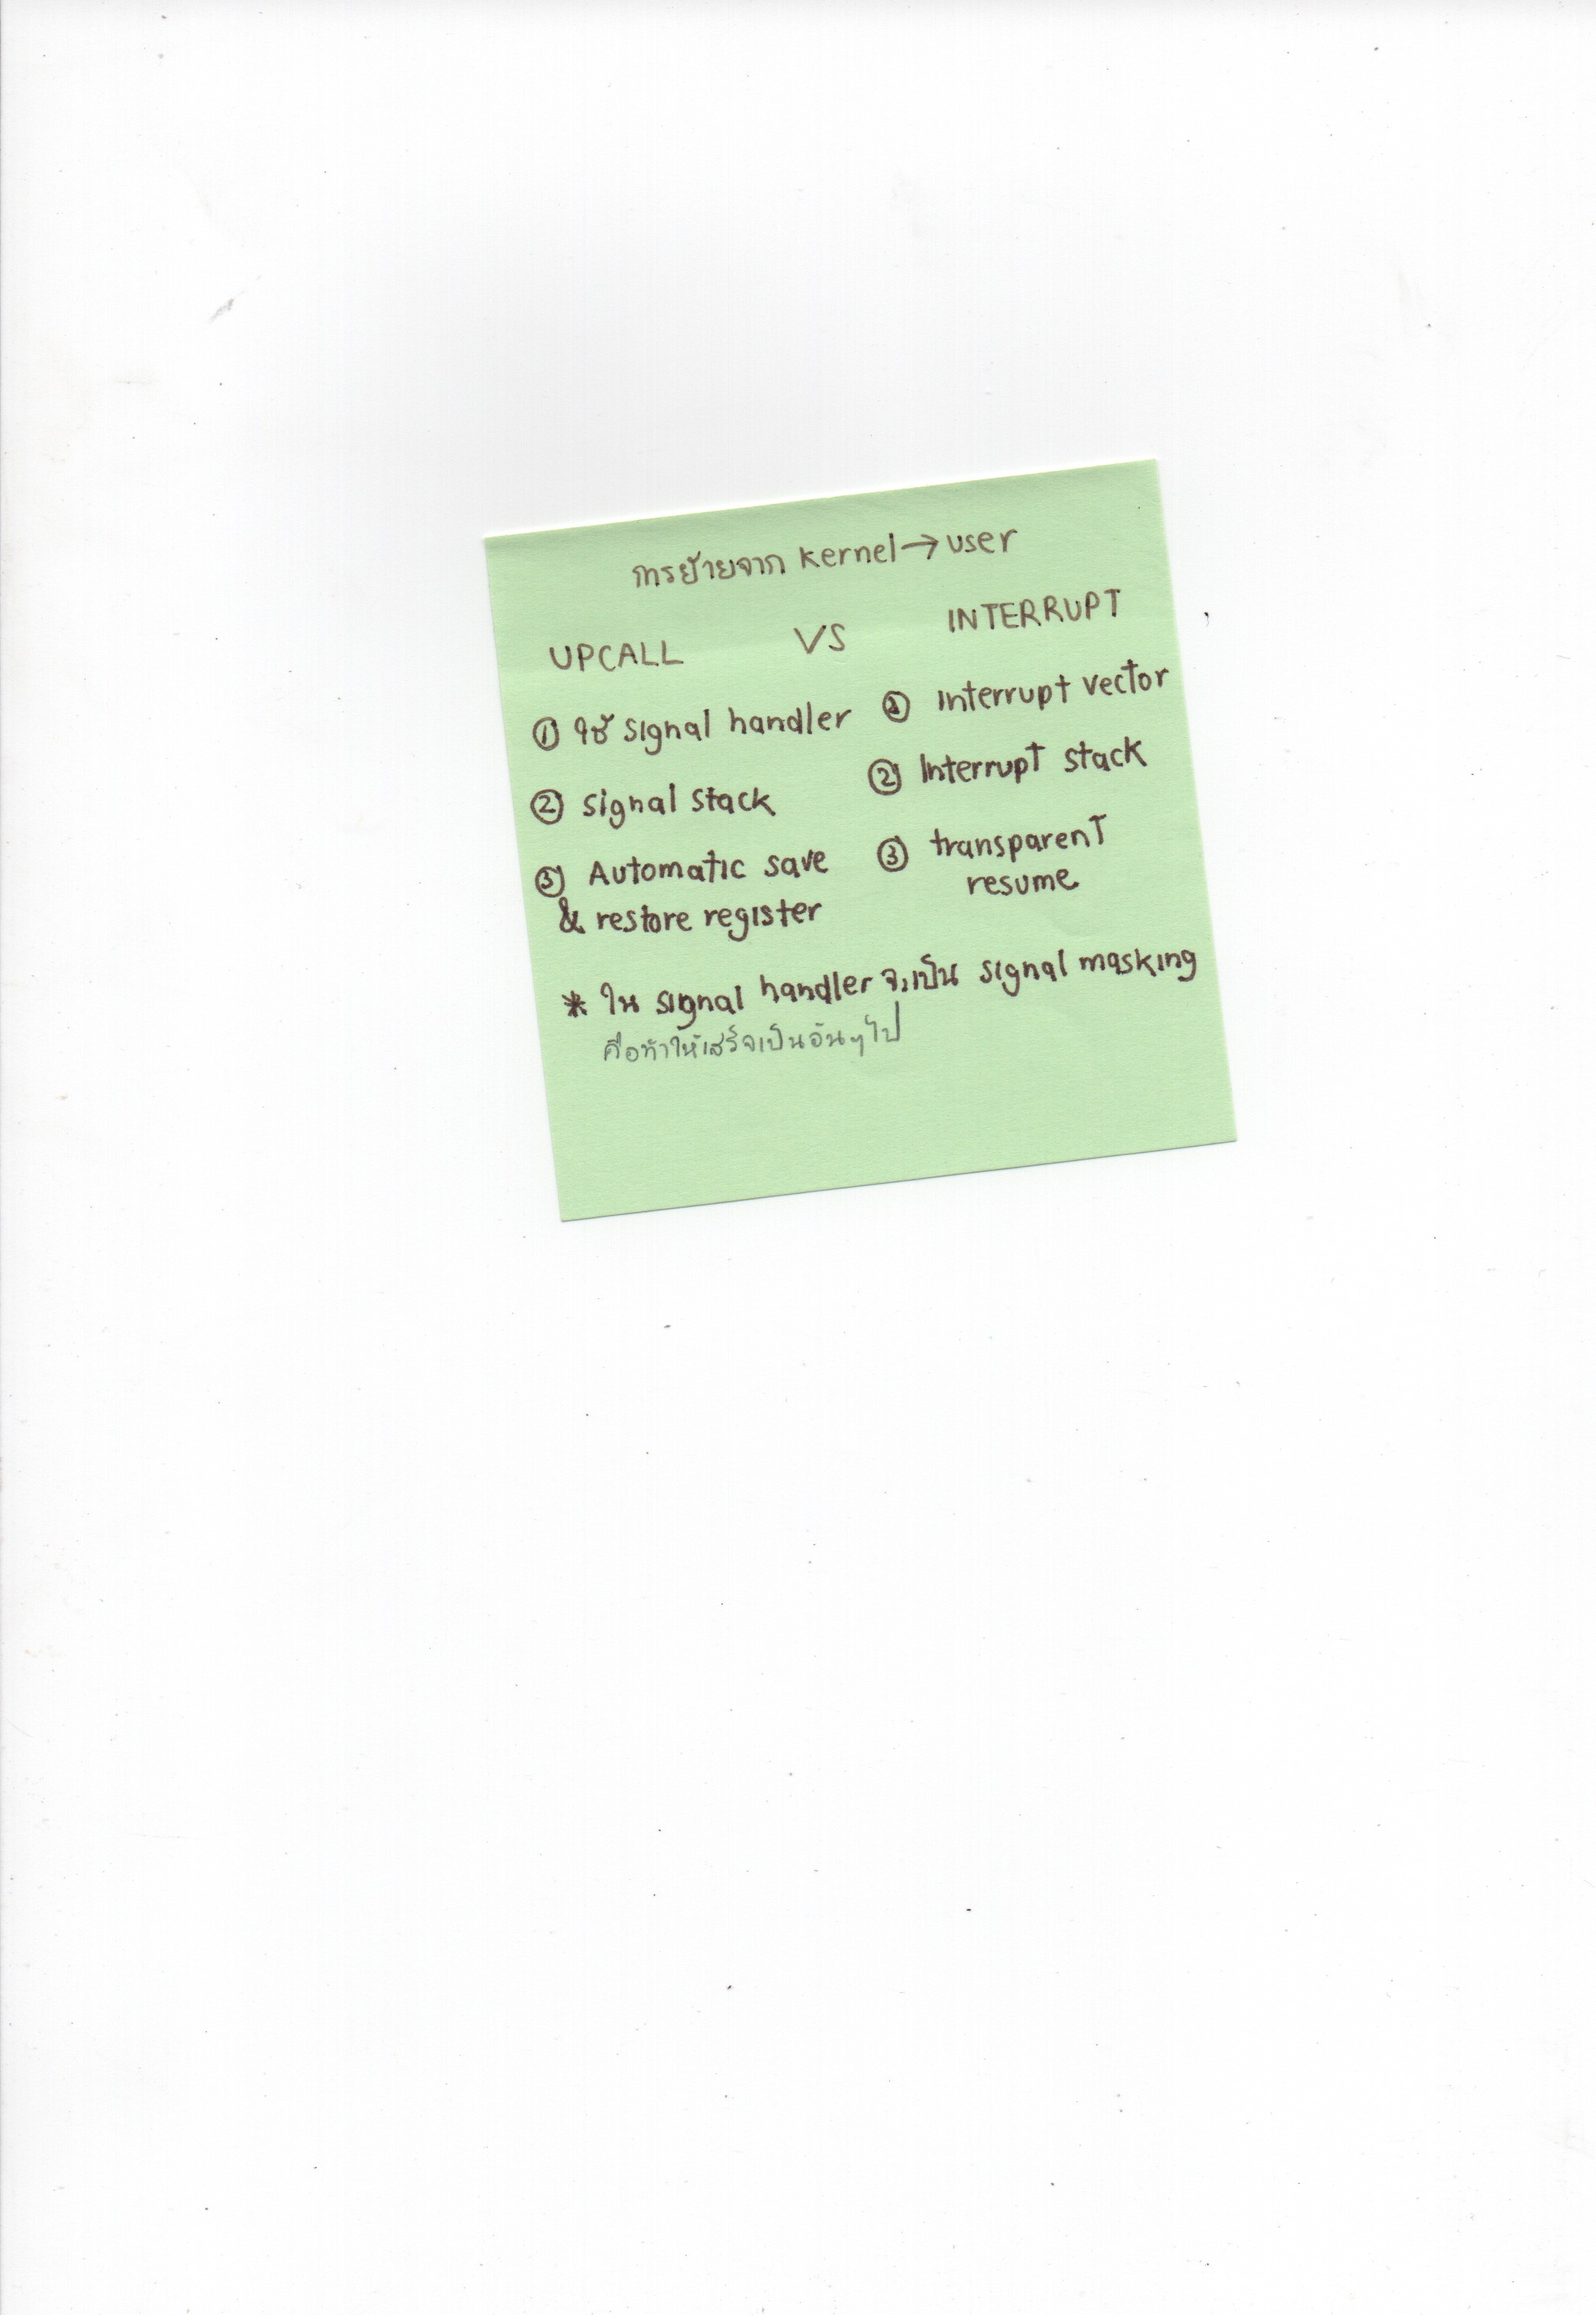 การย้ายจาก kernel → user
UPCALL VS INTERRUPT
① ใช้ signal handler
② signal stack
③ Automatic save
& restore register
① Interrupt vector
② Interrupt stack
③ transparent
resume
* ใน signal handler จะเป็น signal masking
คือทำให้เสร็จเป็นอันๆไป